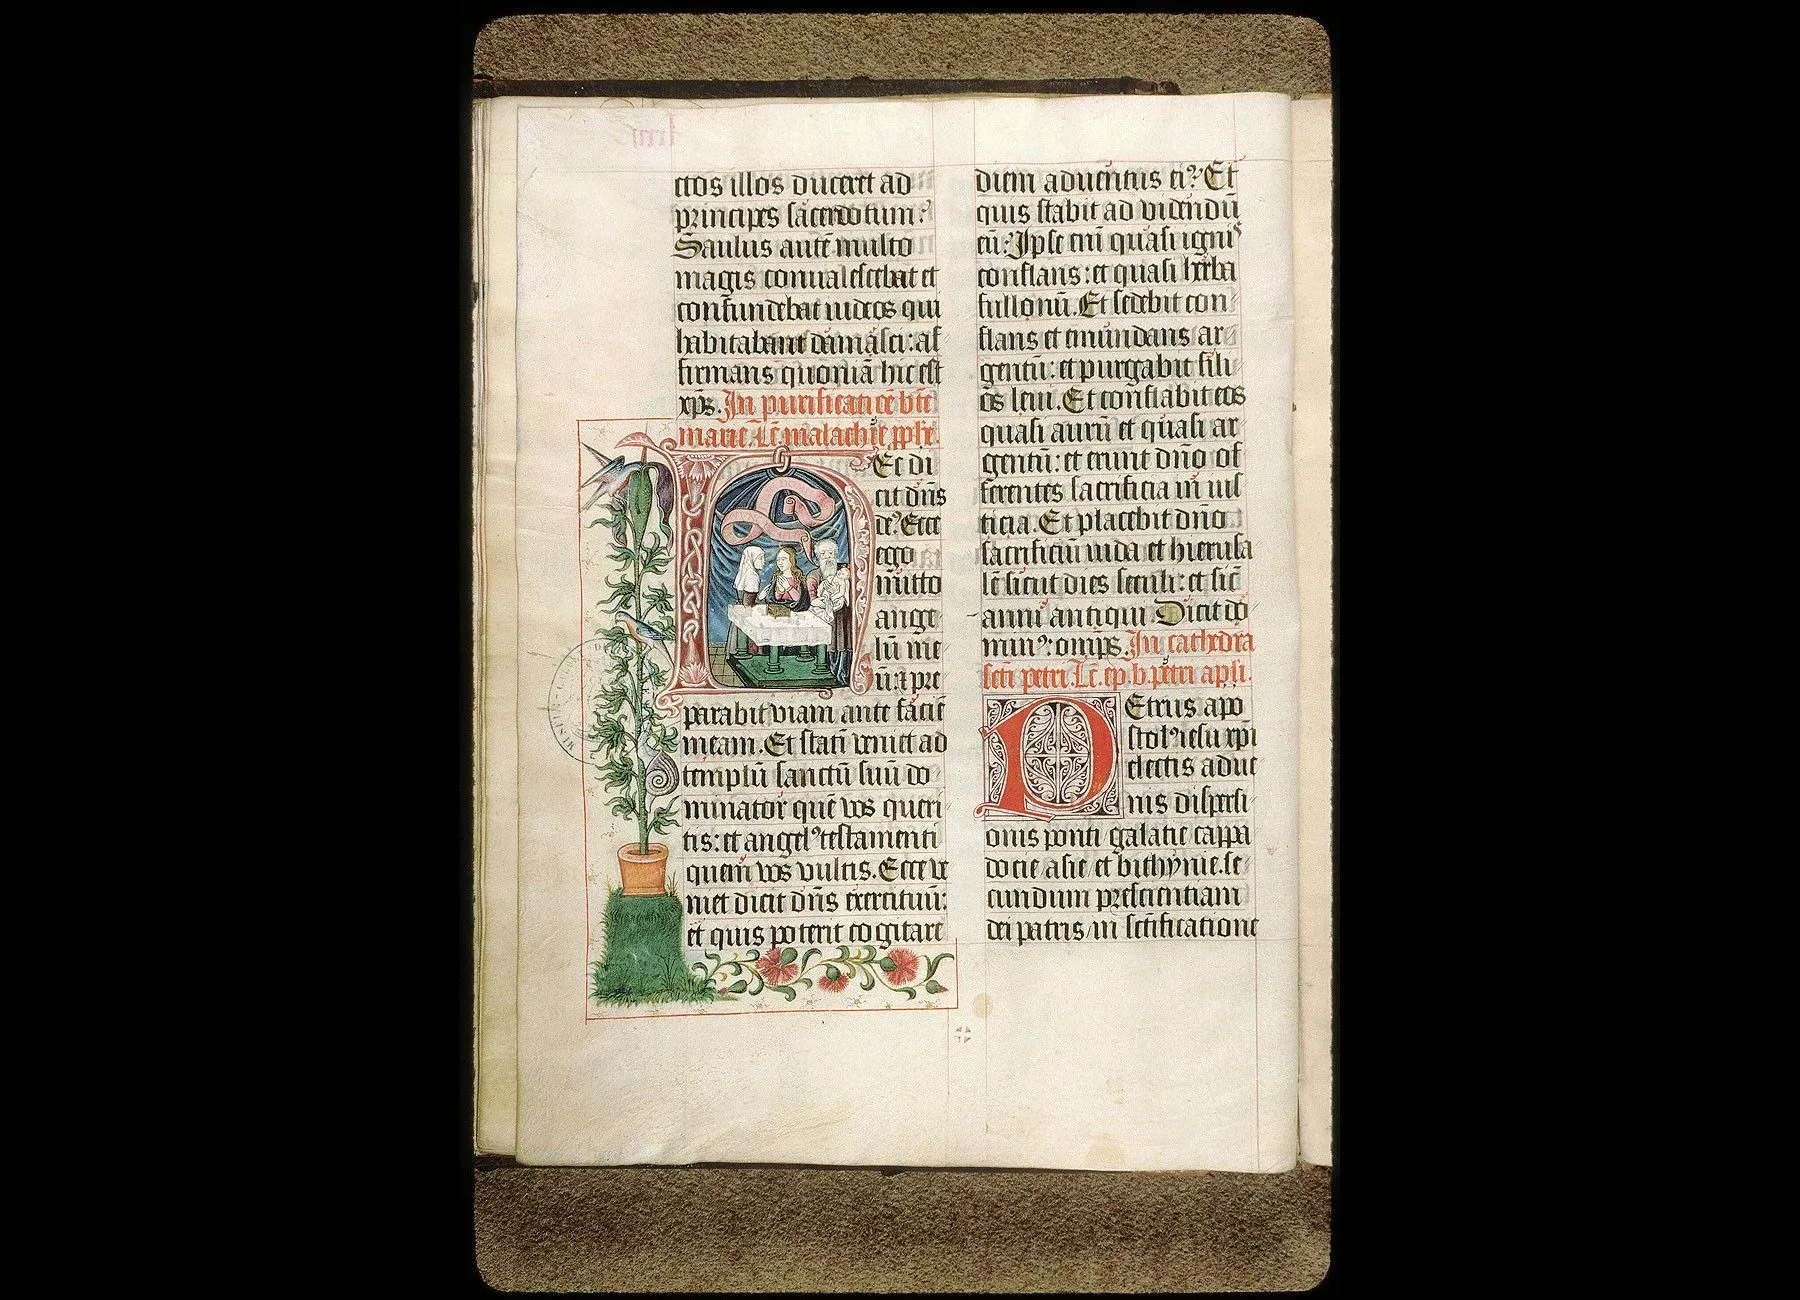 ctos illos duceret ad
principes sacerdotum?
Saulus autē multo
magis conualescebat et
confundebat iudeos qui
habitabant damasci: af
firmans quoniā hic est
xp̄s. In purificatiōe bt̄e
marie. Lc̄. malachie pp̄he.
Ec di
cit dn̄s
de9 Ecce
ego
mitto
ange
lū me
ū: ⁊ pre
parabit viam ante faciē
meam. Et statī veniet ad
templū sanctū suū do
minator quē vos queri
tis: et angel9 testamenti
quem vos vultis. Ecce ve
niet dicit dn̄s exercituū:
et quis poterit cogitare
diem aduentus ei9? Et
quis stabit ad videndū
eū? Ipse eni quasi ignis
conflans: et quasi herba
fullonū. Et sedebit con
flans et emundans ar
gentū: et purgabit fili
os leui. Et conflabit eos
quasi aurū et quasi ar
gentū: et erunt dn̄o of
ferentes sacrificia in ius
ticia. Et placebit dn̄o
sacrificiū iuda et hierusa
lē sicut dies seculi: et sic̄
anni antiqui. Dicit do
min9: omīps. In cathedra
sc̄ti petri. Lc̄. ep. b. petri apl̄i.
PEtrus apo
stol9 iesu xp̄i
electis adue
nis dispersi
onis ponti galatie cappa
docie asie et bithynie. se
cundum prescientiam
dei patris in sc̄tificatione